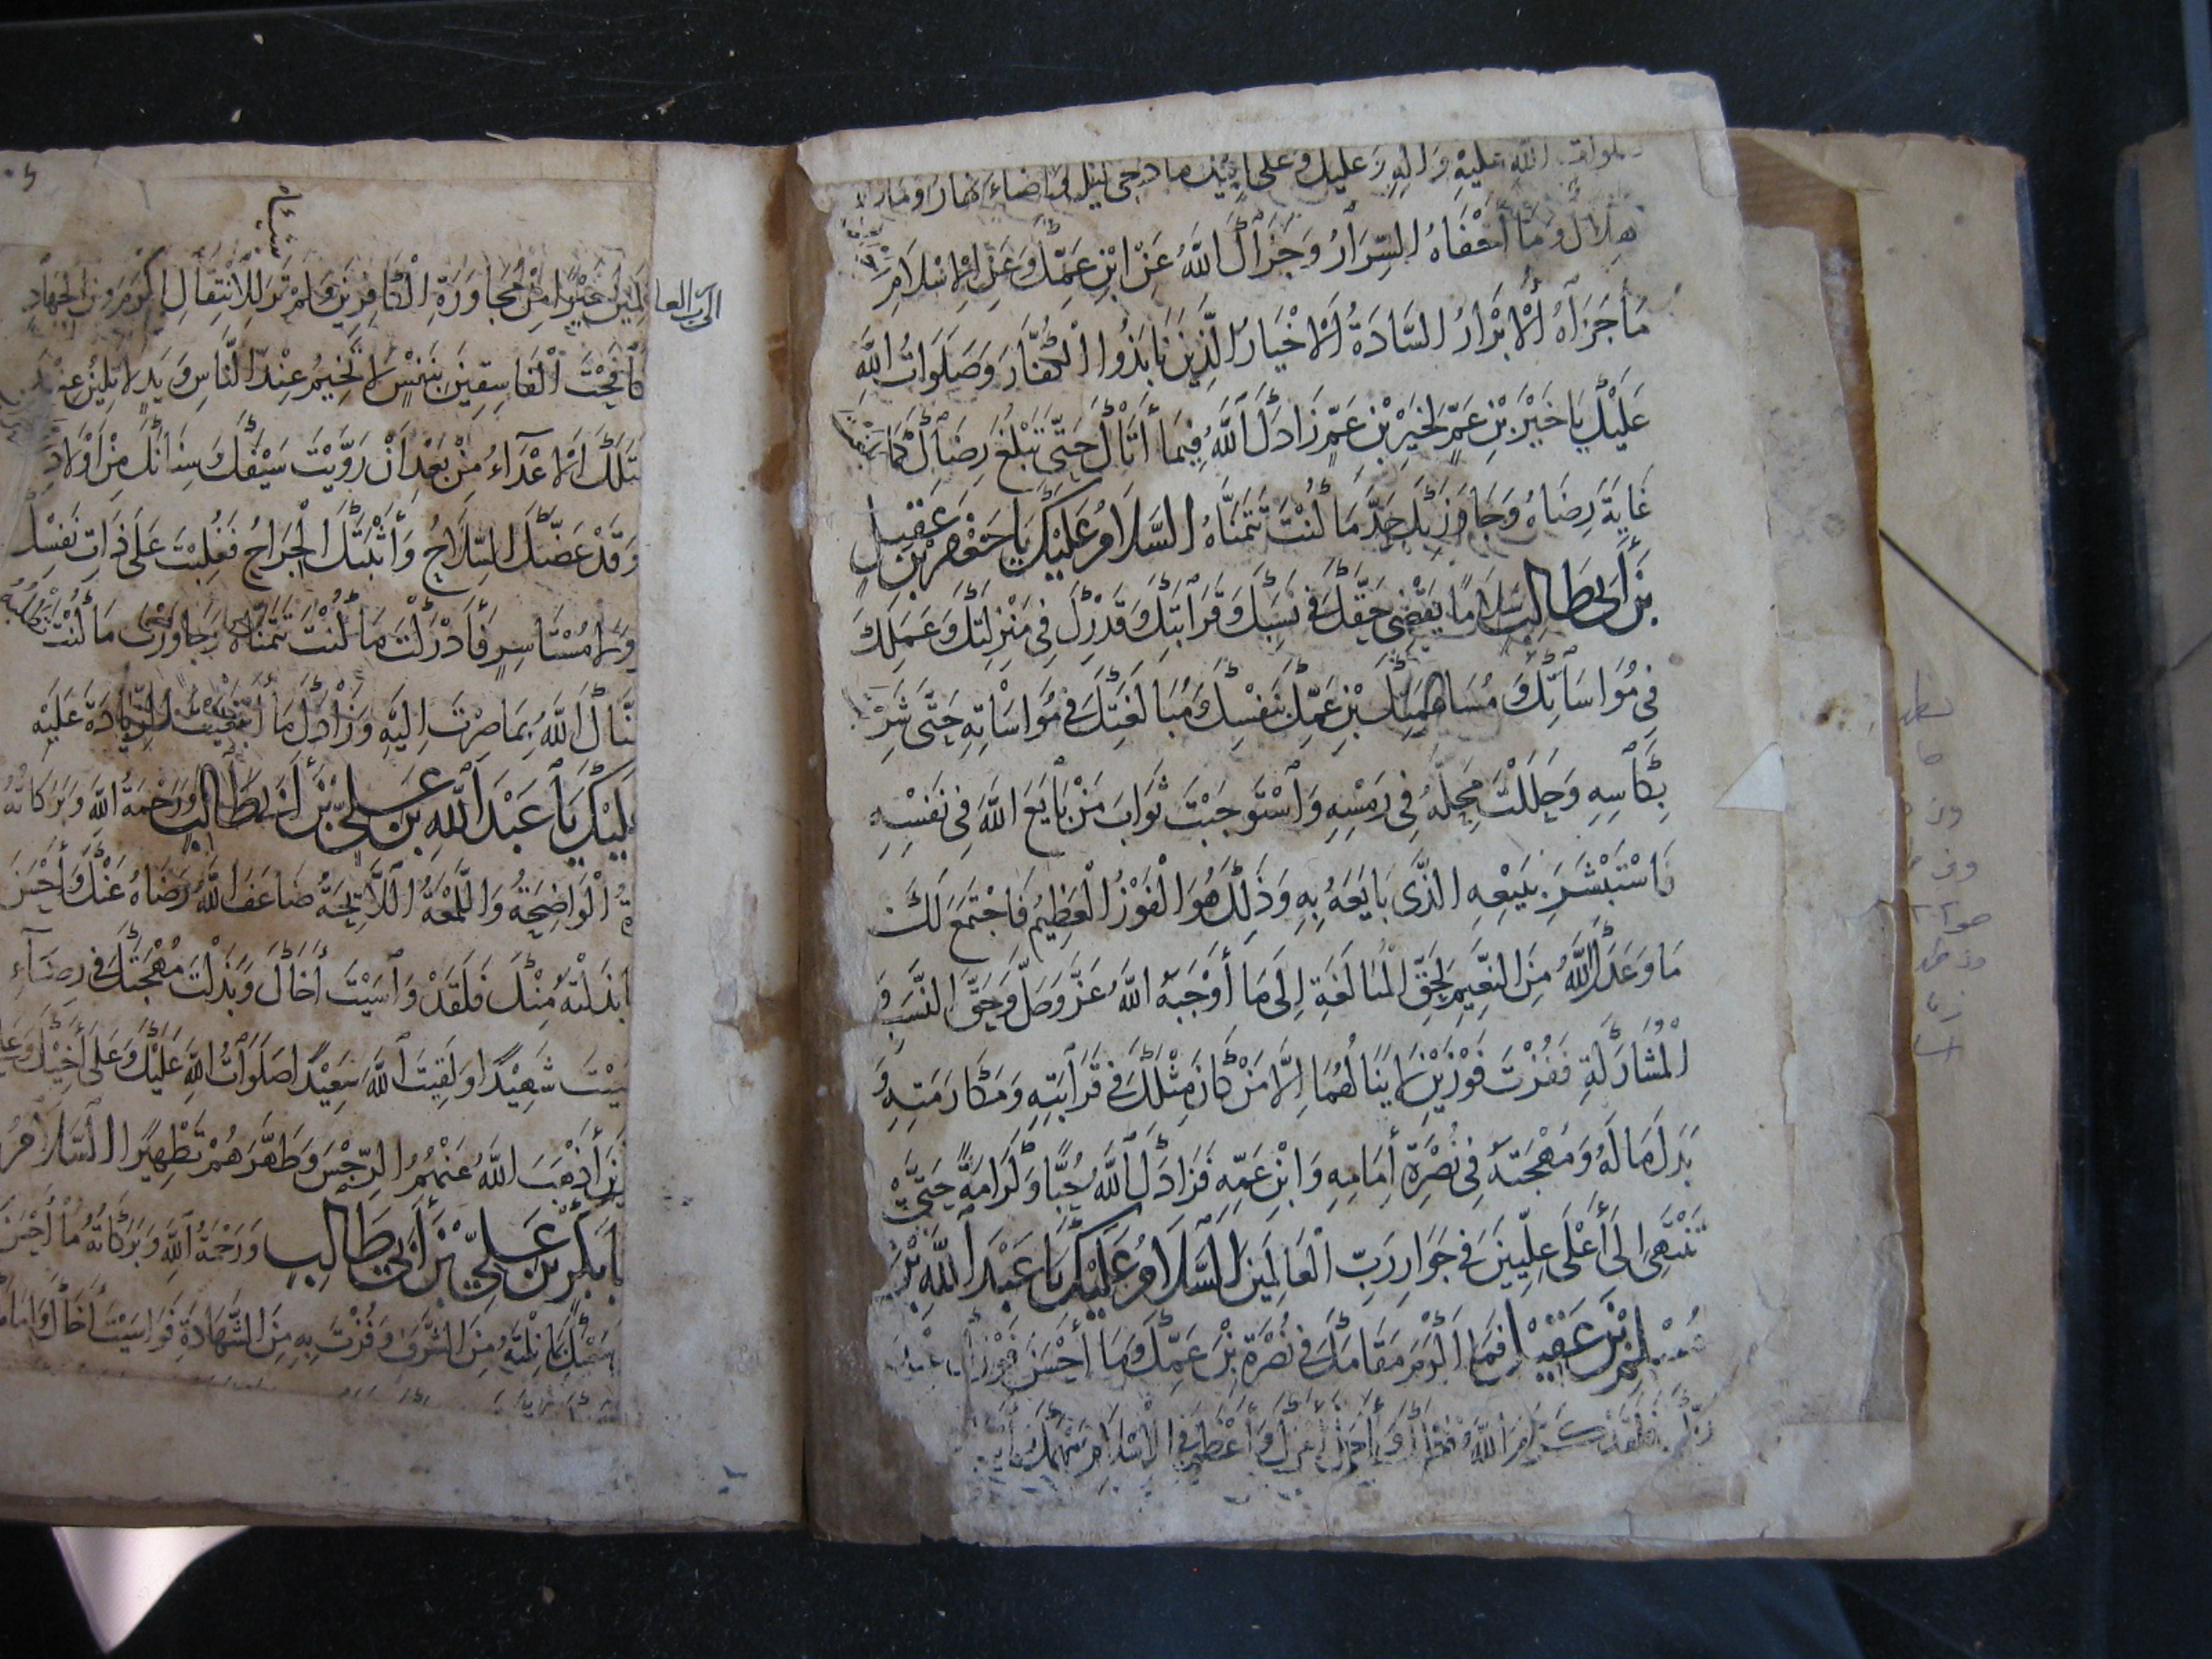 صلوات الله عليه واله وعليك وعلى أبيك ما دجى ليل وأضاء نهار وما
هلال وما أخفاه السرار وجزاك الله عن ابن عمك وعن الاسلام
ما جزاه الابرار السادة الاخيار الذين نابذوا الكفار وصلوات الله
عليك يا خير بن عم لخير بن عم زادك الله فيما أتاك حتى تبلغ رضاك كما بلغت
غاية رضاه وجاوز بك حد ما كنت تتمناه السلام عليك يا جعفر بن عقيل
بن أبي طالب سلاما يقضي حقك في نسبك وقرابتك وقدرك في منزلتك وعملك
في مواساتك ومساهمتك بن عمك بنفسك ومبالغتك في مواساته حتى شربت
بكأسه وحللت محله في رمسه واستوجبت ثواب من بايع الله في نفسه
فاستبشر ببيعه الذي بايعه به وذلك هو الفوز العظيم فاجتمع لك
ما وعدك الله من النعيم بحق المبالغة إلى ما أوجبه الله عز وجل وحق النسب و
المشاركة ففزت فوزين لا ينالهما إلا من كان مثلك في قرابته ومكارمته و
بذل ماله ومهجته في نصرة إمامه وابن عمه فزادك الله حبا وكرامة حتى
تنتهي إلى أعلى عليين في جوار رب العالمين السلام عليك يا عبد الله بن
مسلم بن عقيل فما أكرم مقامك في نصرة بن عمك وما أحسن فوزك عند
ربك فلقد كرم الله وأعظم في الاسلام سهمك
إلى رب العا
لمين خيرا من مجاورة الكافرين ولم تر للانتقال اكرم من الجهاد
كافحت الفاسقين بنفس لا تخيم عند الناس ويد لا تلين عند
تلك الاعداء من بعد ان رويت سيفك سنانك من أولاد
وقد عضك السلاح وأثبتك الجراح فغلبت على ذات نفسك
ولا مستأسر فأدركت ما كنت تتمناه وجاوزت ما كنت تطلبه
نالك الله بما صرت اليه وزادك ما ابتغيت الزيادة عليه
عليك يا عبد الله بن علي بن أبي طالب ورحمة الله وبركاته
ة الواضحة واللمعة اللائحة ضاعف الله رضاه عنك وأحسن
ا بذلته منك فلقد واسيت أخاك وبذلت مهجتك في رضاء
شهيدا ولقيت الله سعيدا صلوات الله عليك وعلى أخيك وعلى
ين أذهب الله عنهم الرجس وطهرهم تطهيرا السلام
ابابكر بن علي بن أبي طالب ورحمة الله وبركاته ما أحسن
من الشرف وفزت به من الشهادة فواسيت أخاك وامامك